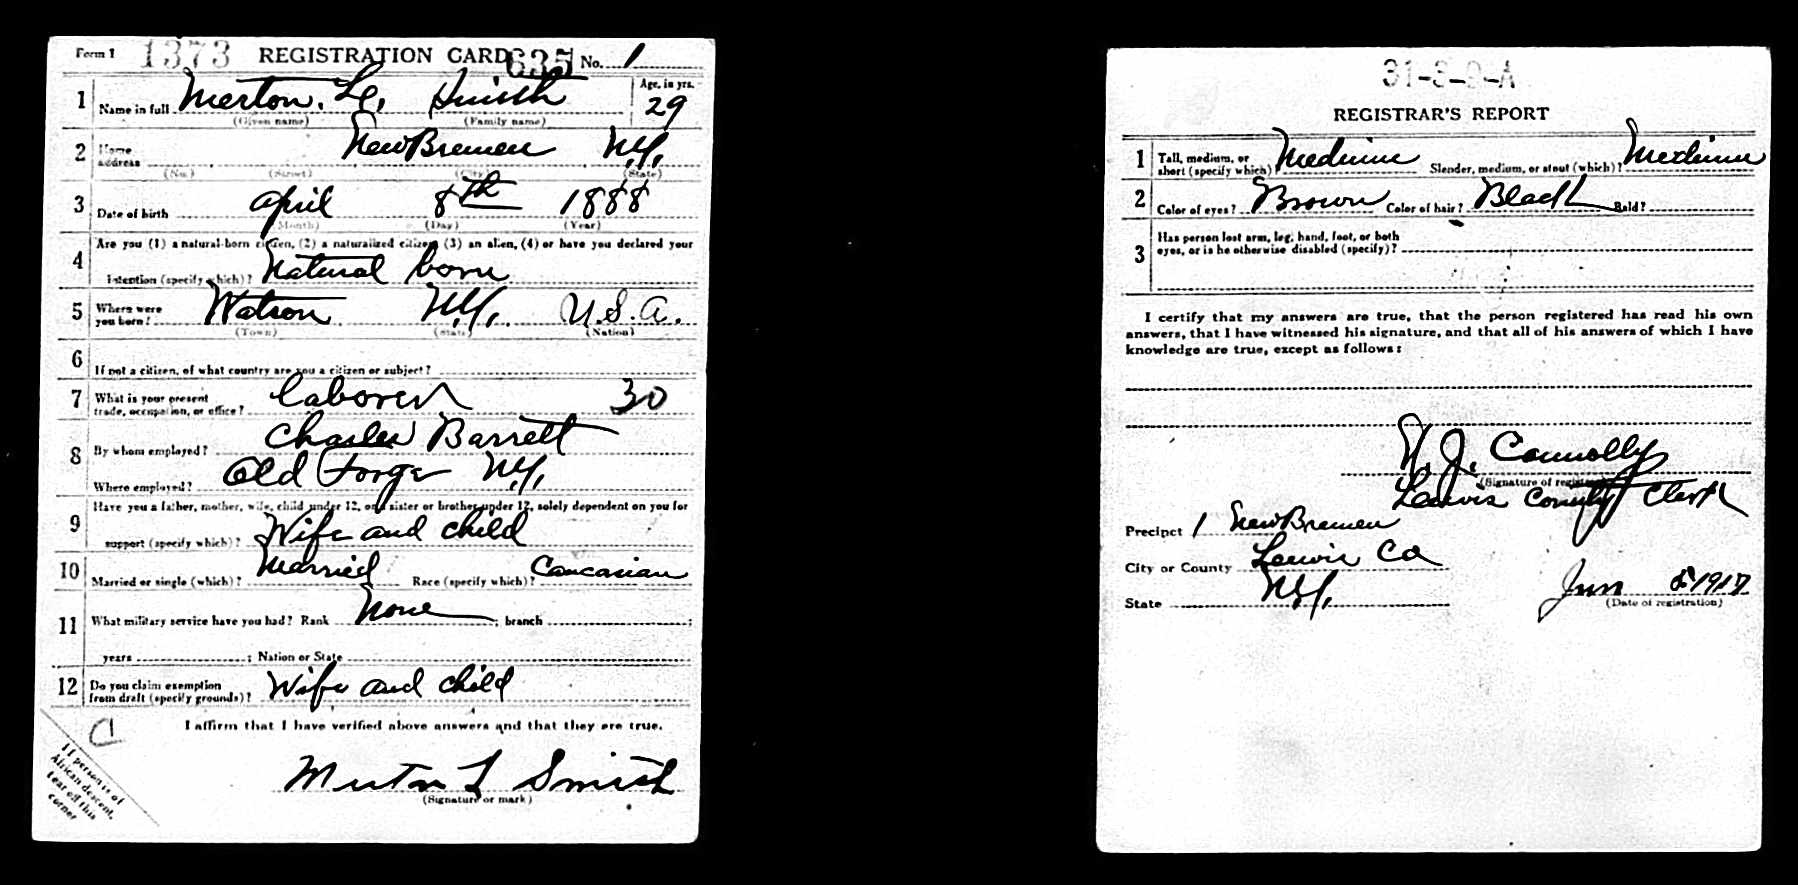 Form 1 1373 REGISTRATION CARD 635 No. 1
1 Name in full Merton. L. Smith Age, in yrs. 29
(Given name) (Family name)
2 Home address New Bremen N.Y.
(No.) (Street) (City) (State)
3 Date of birth April 8th 1888
(Month) (Day) (Year)
4 Are you (1) a natural-born citizen, (2) a naturalized citizen, (3) an alien, (4) or have you declared your
intention (specify which)? Natural born
5 Where were you born? Watson N.Y. U.S.A.
(Town) (State) (Nation)
6 If not a citizen, of what country are you a citizen or subject?
7 What is your present trade, occupation, or office? Laborer 30
8 By whom employed? Charles Barrett
Where employed? Old Forge N.Y.
9 Have you a father, mother, wife, child under 12, or a sister or brother under 12, solely dependent on you for
support (specify which)? Wife and child
10 Married or single (which)? Married Race (specify which)? Caucasian
11 What military service have you had? Rank None ; branch ;
years ; Nation or State
12 Do you claim exemption from draft (specify grounds)? Wife and child
I affirm that I have verified above answers and that they are true.
Merton L Smith
(Signature or mark)
If person is of
African descent,
tear off this
corner
31-3-9-A
REGISTRAR'S REPORT
1 Tall, medium, or short (specify which)? Medium Slender, medium, or stout (which)? Medium
2 Color of eyes? Brown Color of hair? Black Bald?
3 Has person lost arm, leg, hand, foot, or both
eyes, or is he otherwise disabled (specify)?
I certify that my answers are true, that the person registered has read his own
answers, that I have witnessed his signature, and that all of his answers of which I have
knowledge are true, except as follows:
J. Connolly
(Signature of registrar)
Lewis County Clerk
Precinct 1 New Bremen
City or County Lewis Co
State N.Y. Jun 5 1917
(Date of registration)